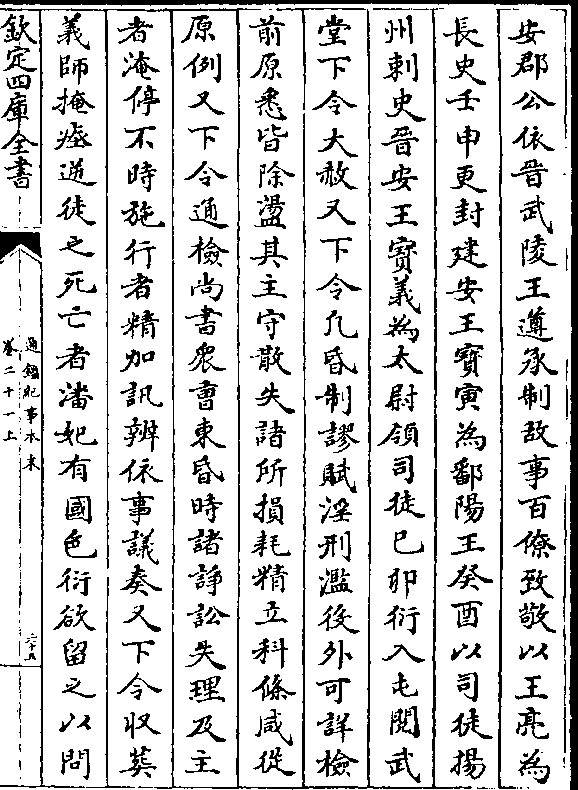 安郡公依晉武陵王遵承制故事百僚致敬以王亮為
長史壬申更封建安王寳寅為鄱陽王癸酉以司徒揚
州刺史晉安王寳義為太尉領司徒已夘衍入屯閱武
堂下令大赦又下令凡昏制謬賦淫刑濫役外可詳檢
前原悉皆除盪其主守散失諸所損耗精立科條咸從
原例又下令通檢尚書衆曹東昏時諸諍訟失理及主
者淹停不時施行者精加訊辨依事議奏又下令収葬
義師掩瘞逆徒之死亡者潘妃有國色衍欲留之以問
欽定四庫全書
通鑑紀事本末
卷二十一上
六十五